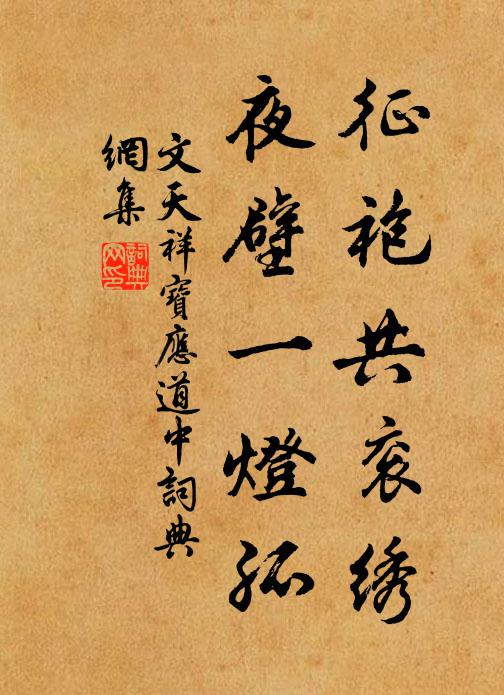 征袍共衮绣
夜壁一燈孤
文天祥寶應道中詞典
網集
詞典網印